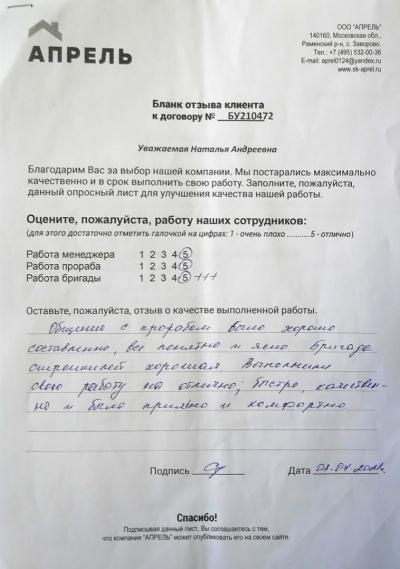 АПРЕЛЬ
ООО "АПРЕЛЬ"
140160, Московская обл.,
Раменский р-н, с. Заворово.
Тел.: +7 (495) 532-00-36
E-mail: aprel0124@yandex.ru
www.sk-aprel.ru
Бланк отзыва клиента
к договору № БУ210472
Уважаемая Наталья Андреевна
Благодарим Вас за выбор нашей компании. Мы постарались максимально
качественно и в срок выполнить свою работу. Заполните, пожалуйста,
данный опросный лист для улучшения качества нашей работы.
Оцените, пожалуйста, работу наших сотрудников:
(для этого достаточно отметить галочкой на цифрах: 1 - очень плохо ...........5 - отлично)
Работа менеджера 1 2 3 4 5
Работа прораба 1 2 3 4 5
Работа бригады 1 2 3 4 5 +++
Оставьте, пожалуйста, отзыв о качестве выполненной работы.
Общение с прорабом было хорошо
составленно, все понятно и ясно. Бригада
хорошая Выполнили
свою работу на отлично; быстро, качествен-
но и было приятно и комфортно
Подпись
Дата
Спасибо!
Подписывая данный лист, Вы соглашаетесь с тем,
что компания "АПРЕЛЬ" может опубликовать его на своем сайте.